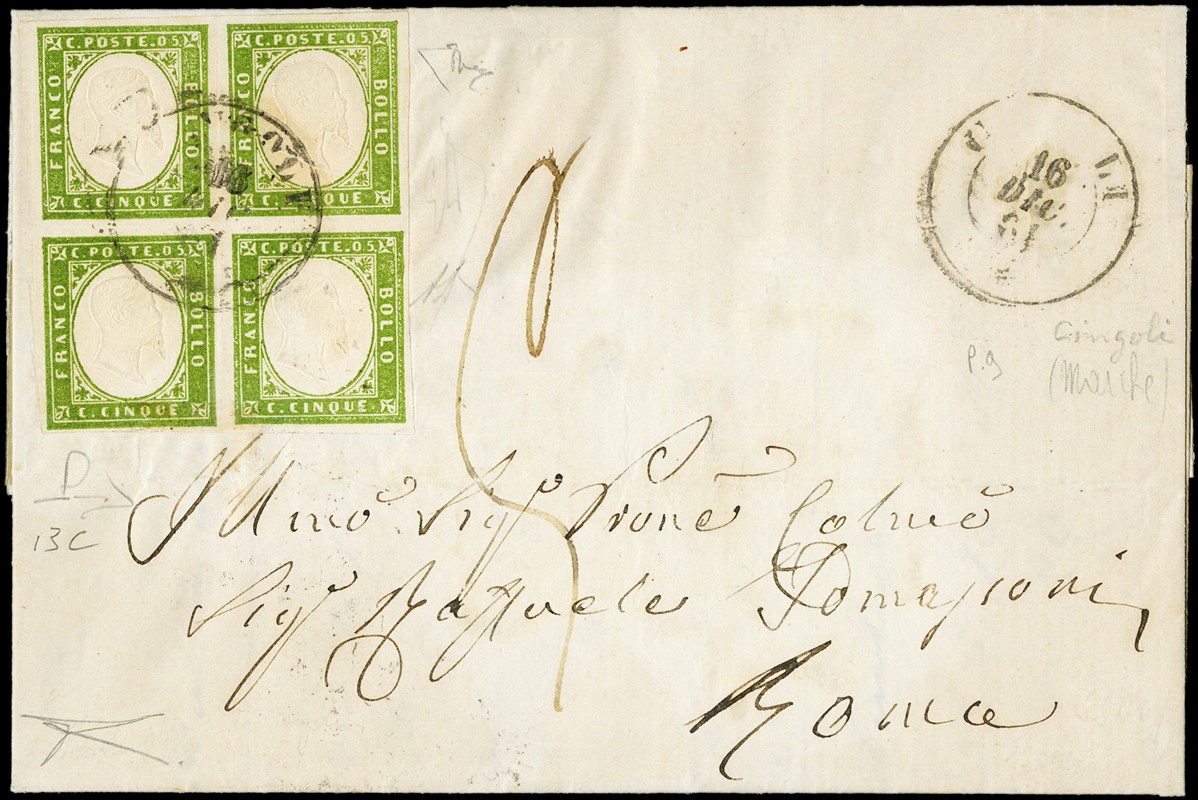 C. POSTE. 05. C. POSTE. 05.
FRANCO BOLLO FRANCO BOLLO
C. CINQUE C. CINQUE.
C. POSTE. 05. C. POSTE. 05.
FRANCO BOLLO FRANCO BOLLO
C. CINQUE. C. CINQUE.
16
DIC
LI
16
DIC.
61
Cingoli
(Marche)
P.g
P
13 C
Illmo Sig Prone Colmo
Sig Raffaele Tomassoni
Roma